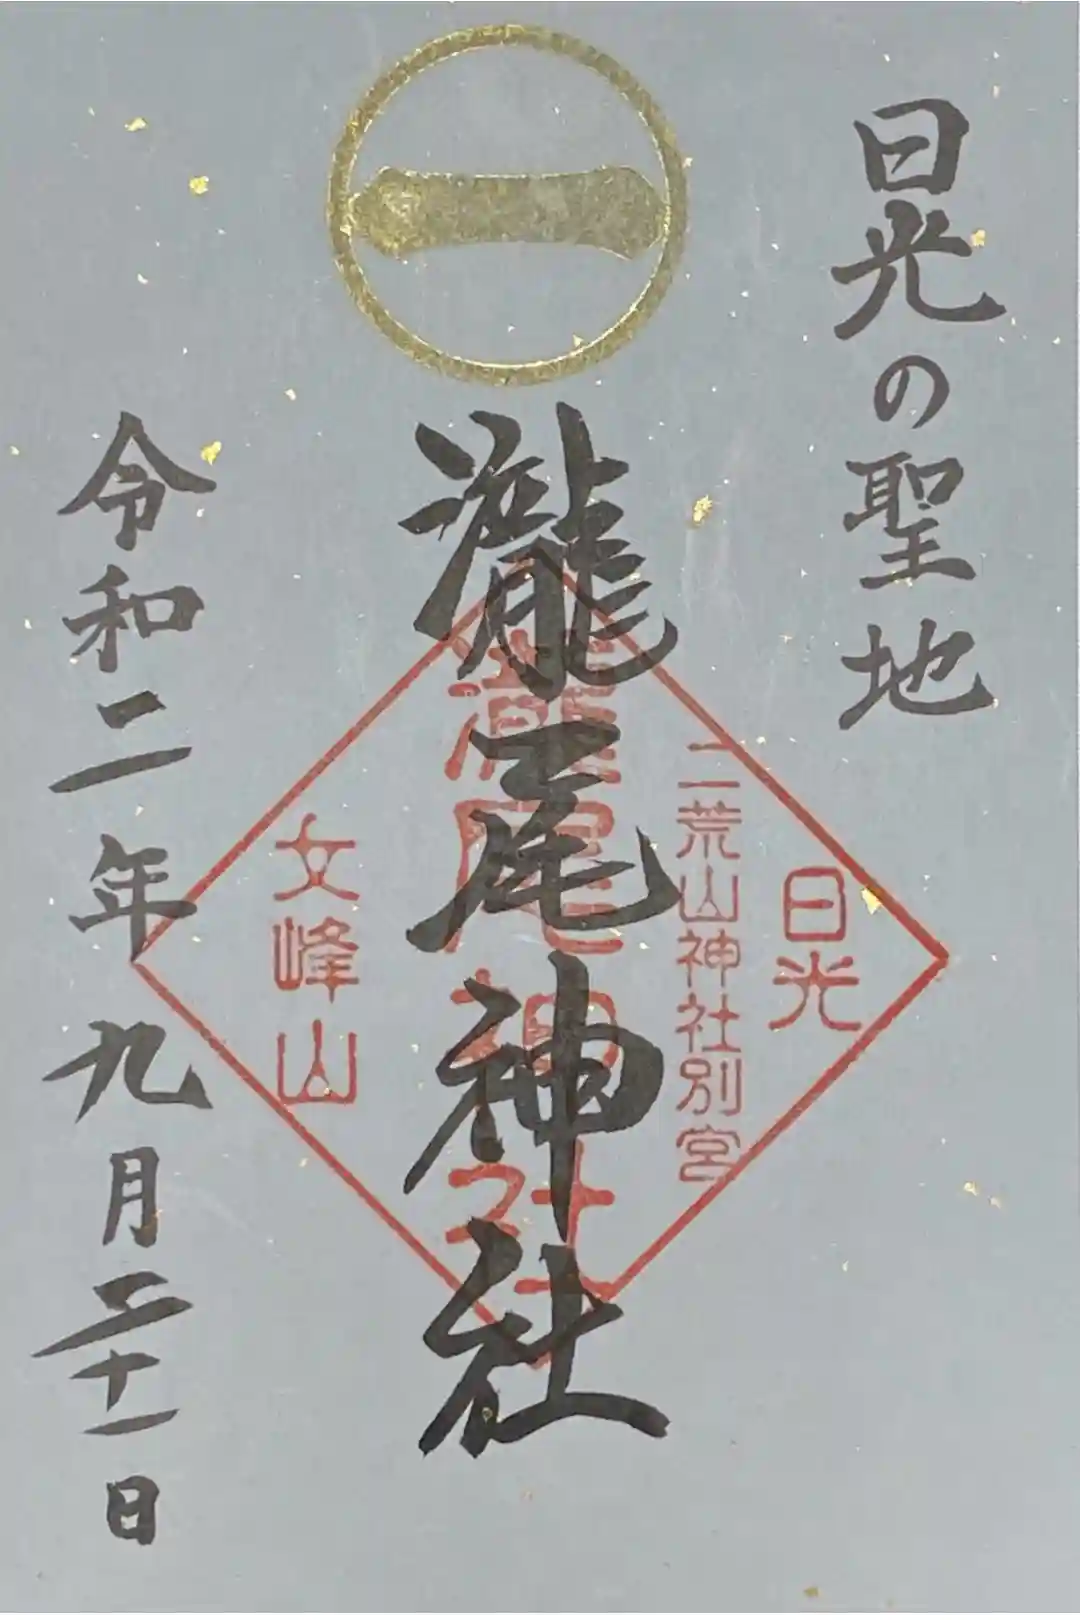 日光の聖地
一
瀧尾神社
日光
二荒山神社別宮
瀧尾神社
文峰山
令和二年九月二十一日